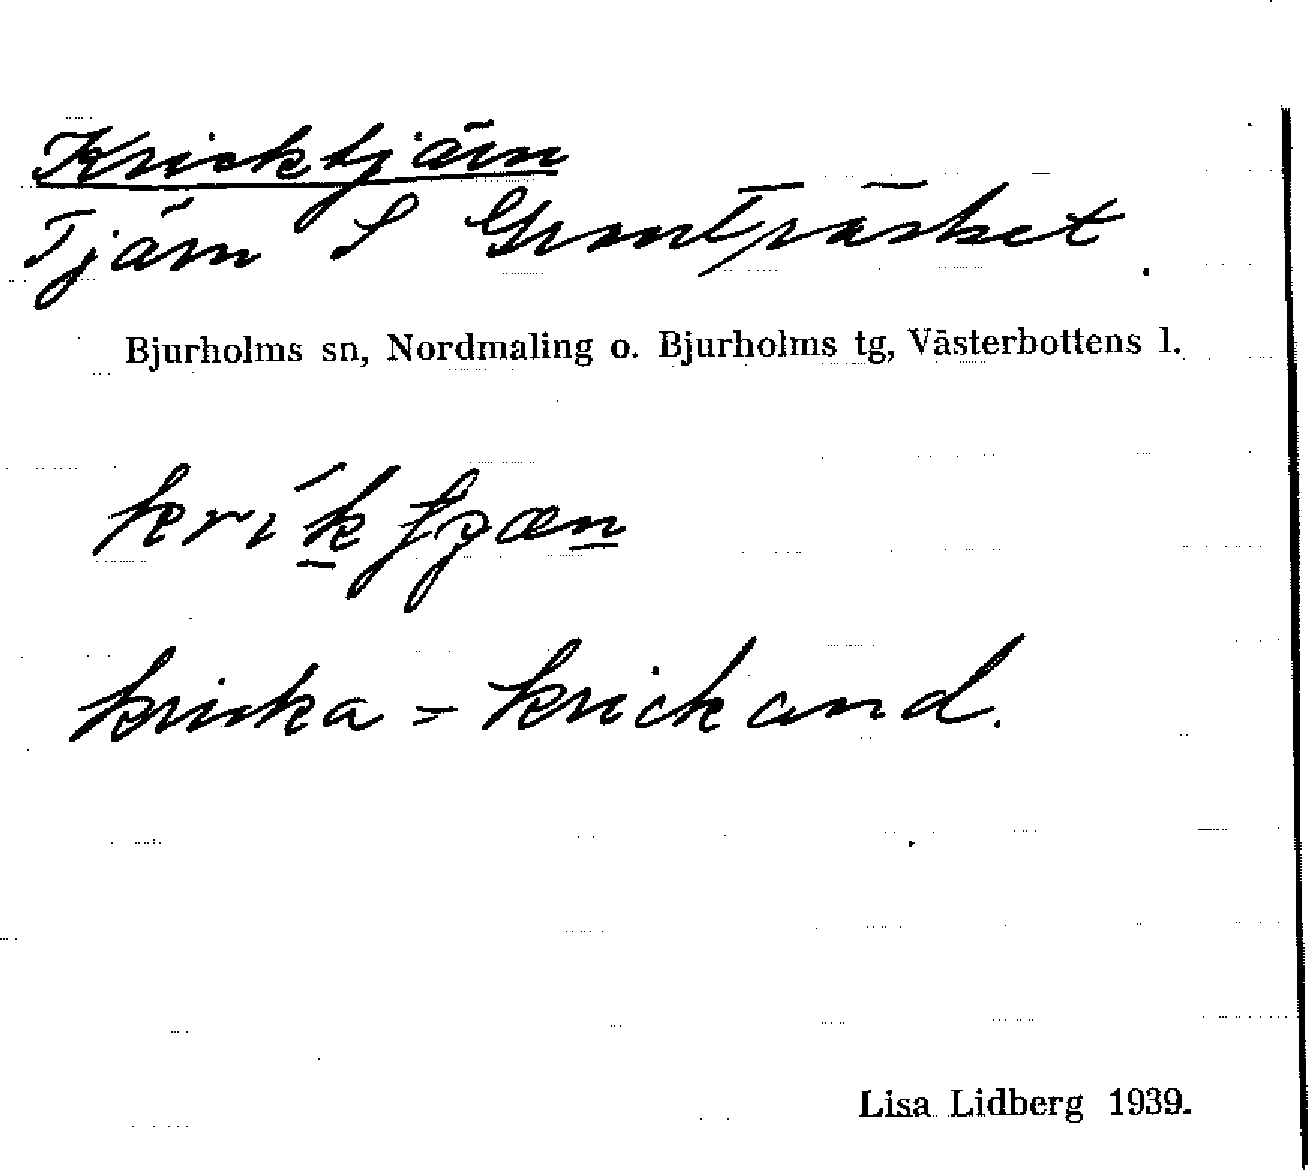 Kricktjärn
Tjärn S Granträsket.
Bjurholms sn, Nordmaling o. Bjurholms tg, Västerbottens l.
kricka = krickand.
Lisa Lidberg 1939.